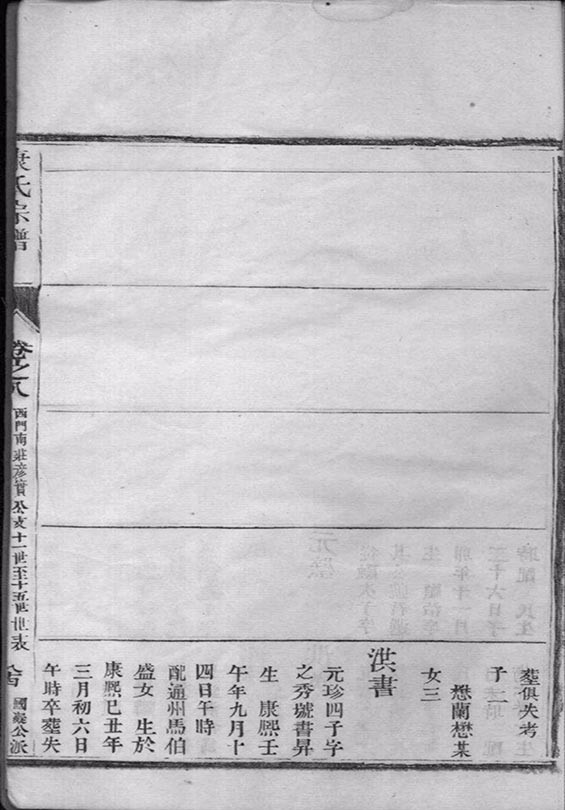 塟俱失考
子
懋蘭懋某
女三
洪書
元珍四子字
之秀號書昇
生 康熙壬
午年九月十
四日午時
配通州馬伯
盛女 生於
康熙己丑年
三月初六日
午時卒塟失
康氏宗譜
卷之八
西門南莊彦賓公支十一世至十五世世表
國義公派